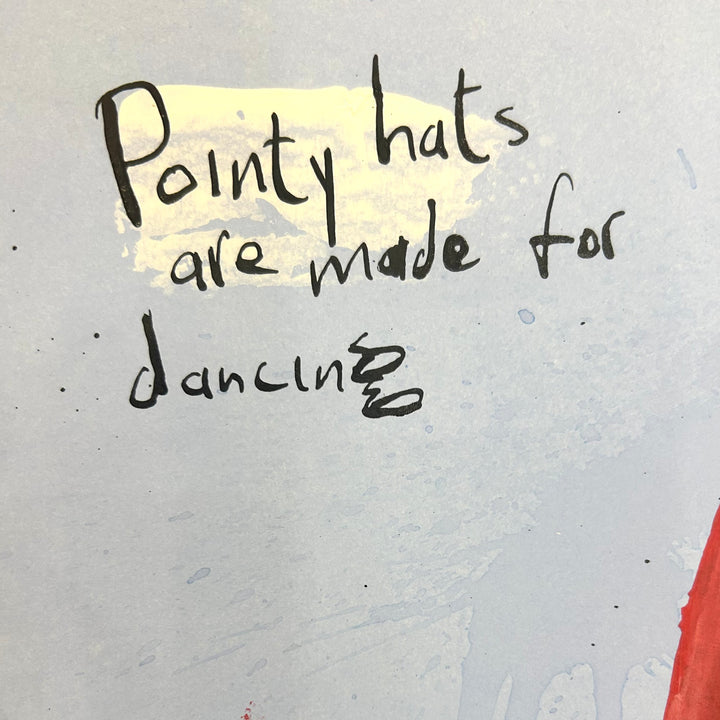 Pointy hats
are made for
dancing